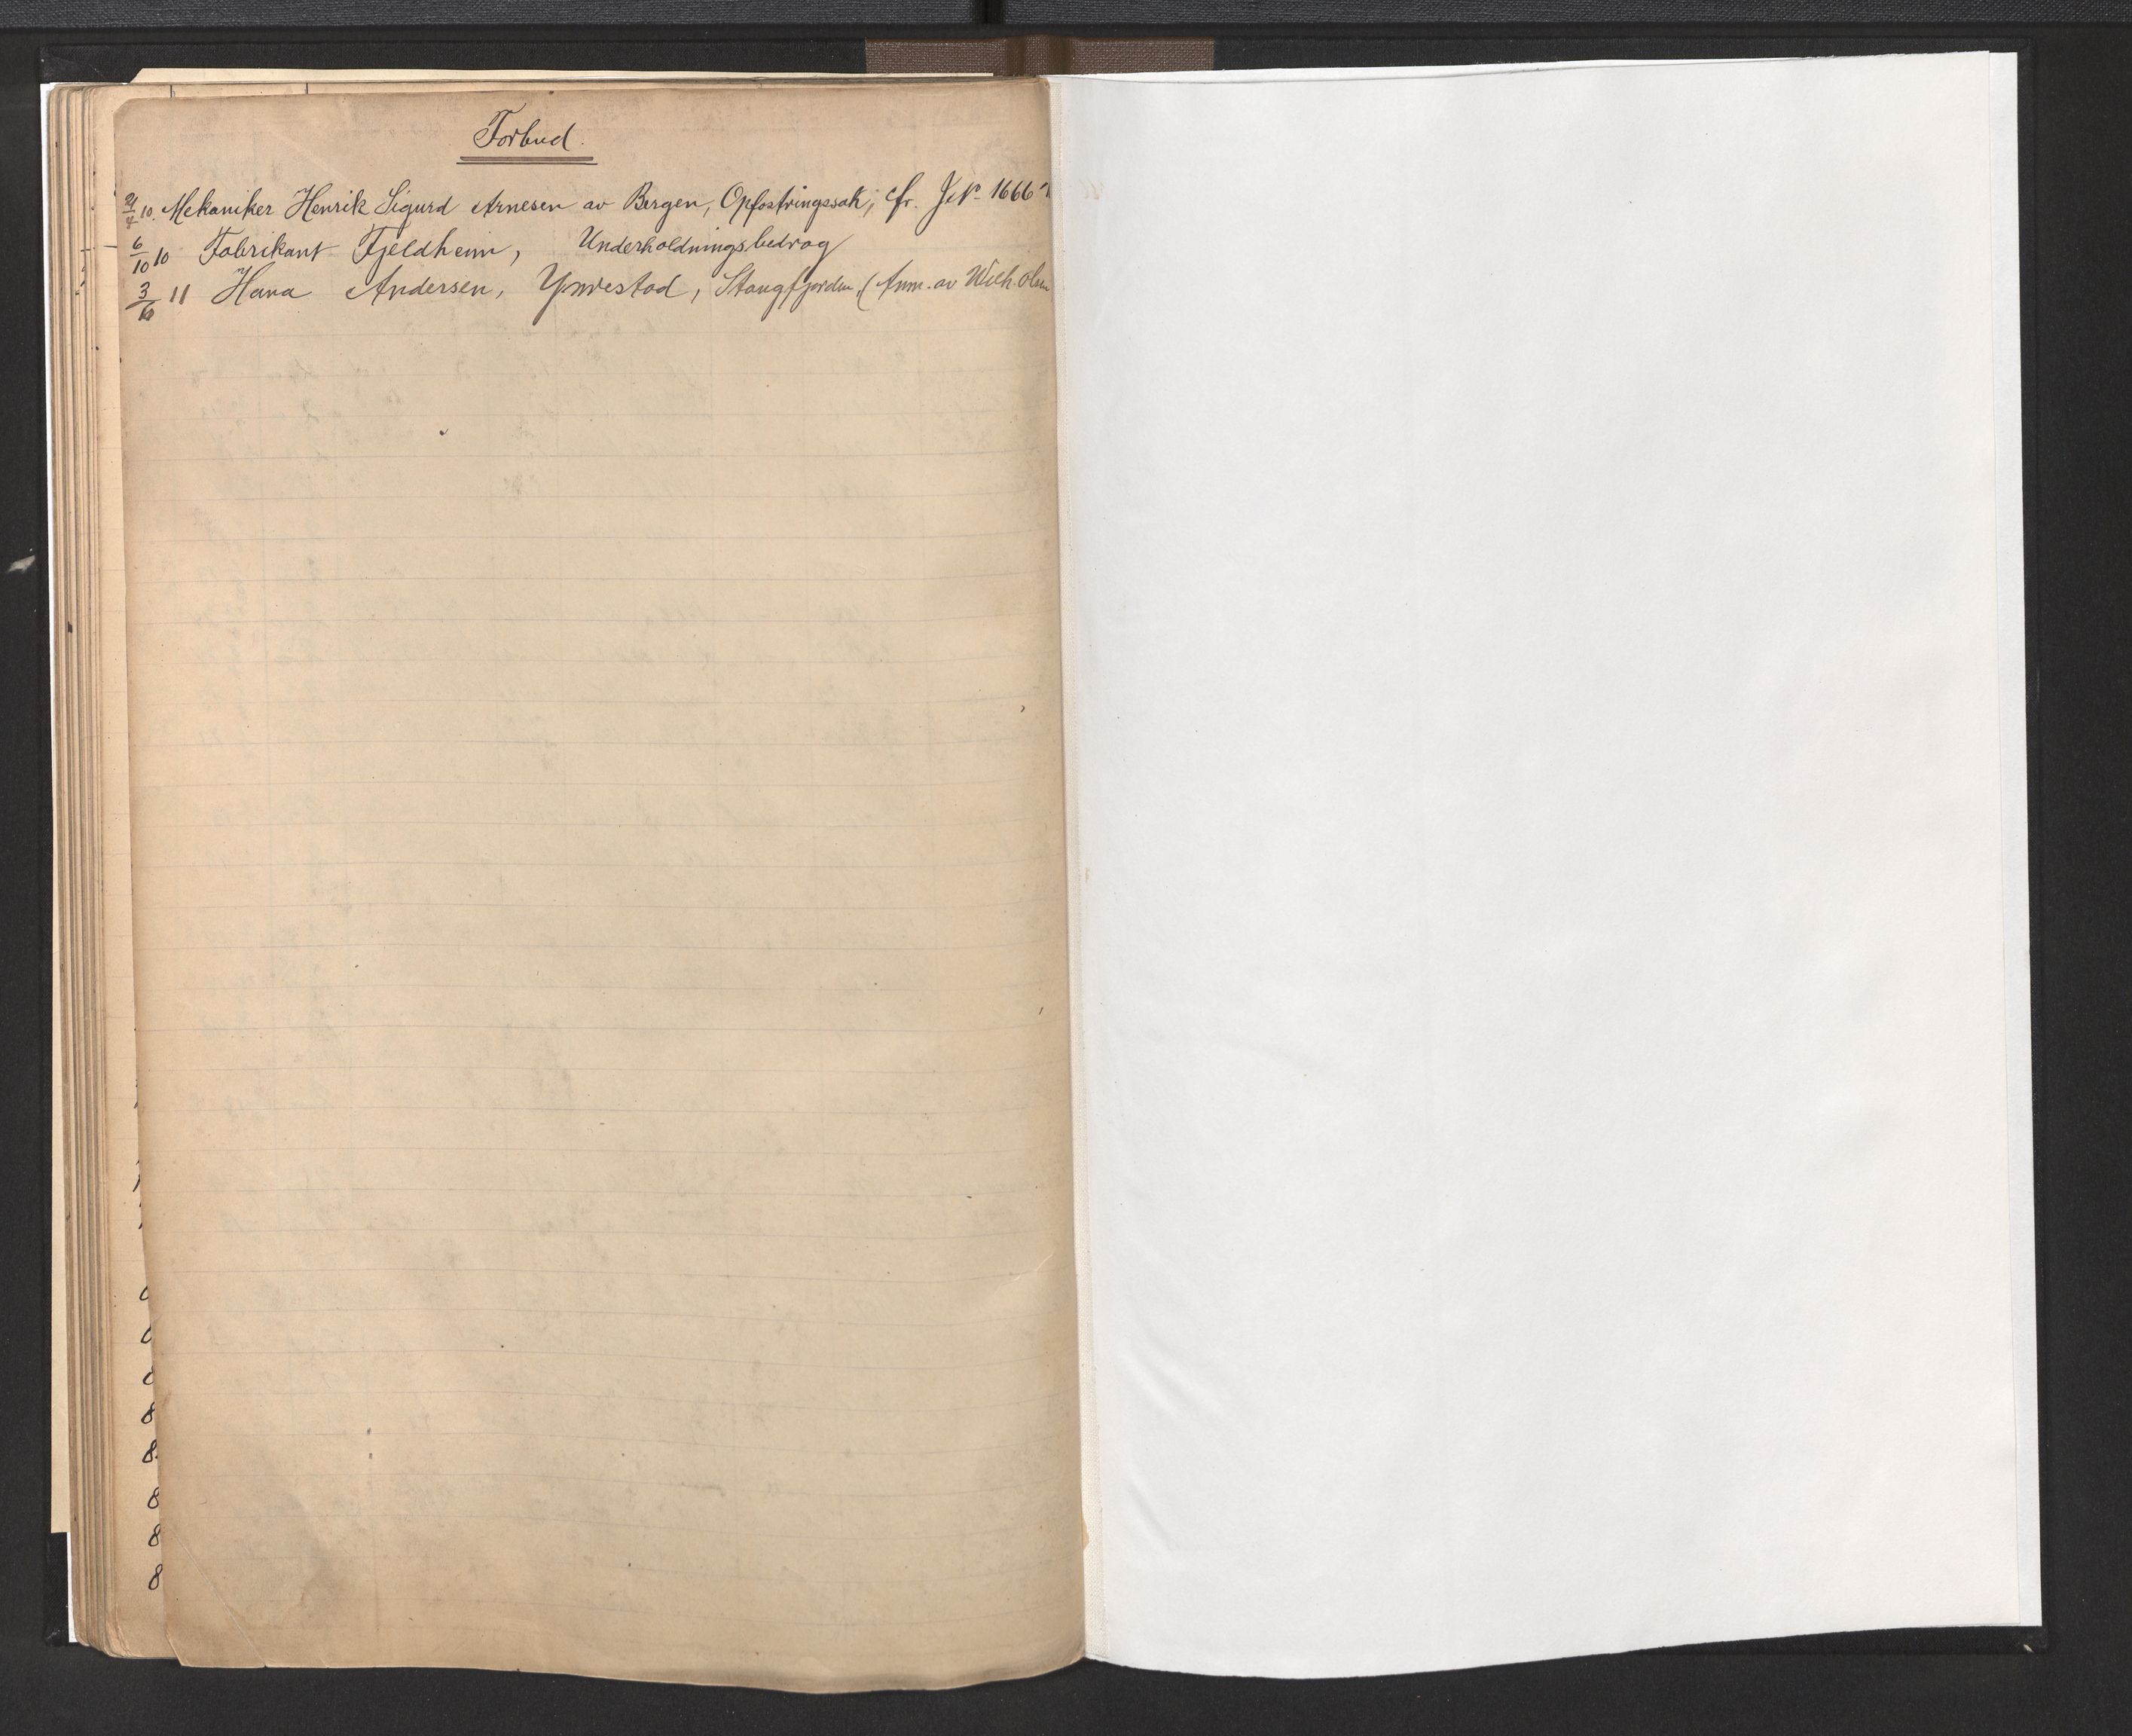 Forbud.
21/7 10. Mekaniker Henrik Sigurd Arnesen av Bergen, Opfostringssak; cfr. J.№ 1666
6/10 10 Fabrikant Fjeldheim, Underholdningsbedrag
3/6 11 Hana Andersen, Yndestad, Stangfjorden, (Anm. av Wilh. Olsen